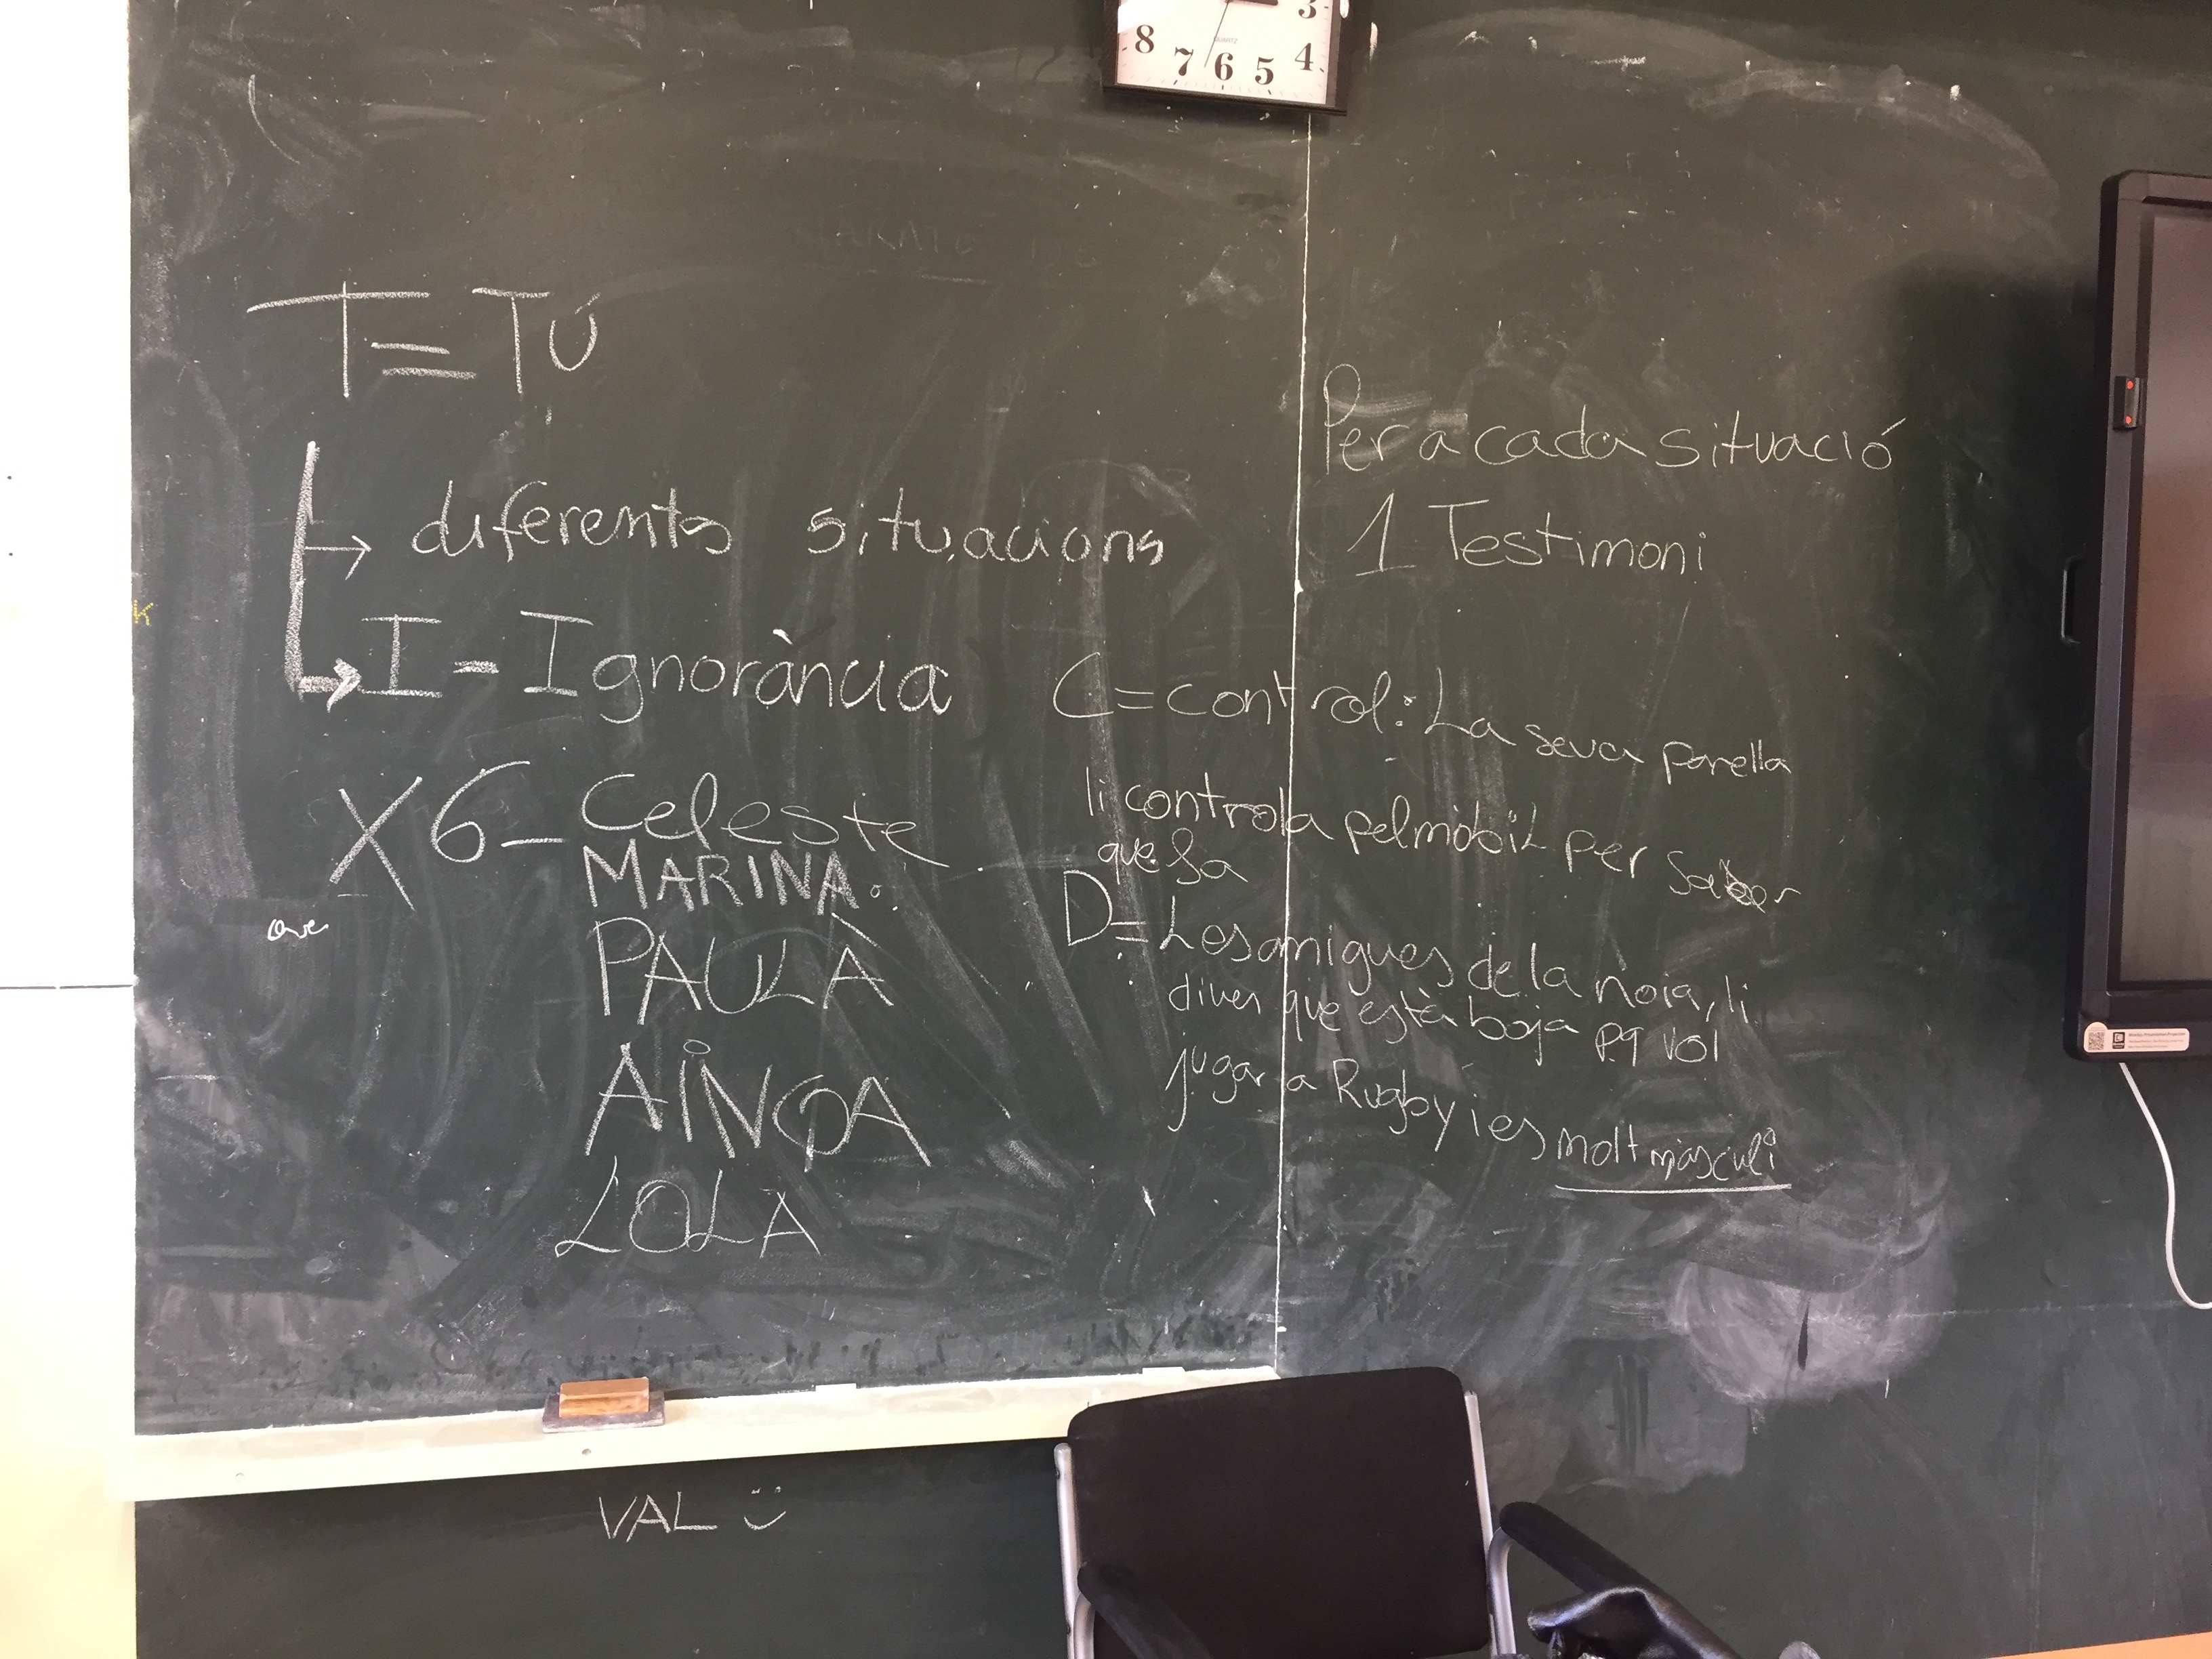 8 7 6 5 4 3
QUARTZ
T=TÚ
diferents situacions
I-Ignorància
X6-Celeste
MARINA.
PAULA
AINOA
LOLA
VAL
Per a cada situació
1 Testimoni
C=control: La seva parella
li controla pel mòbil per saber
que fa
D= Les amigues de la noia, li
diuen que està boja pq vol
jugar a Rugby i es molt masculí
K